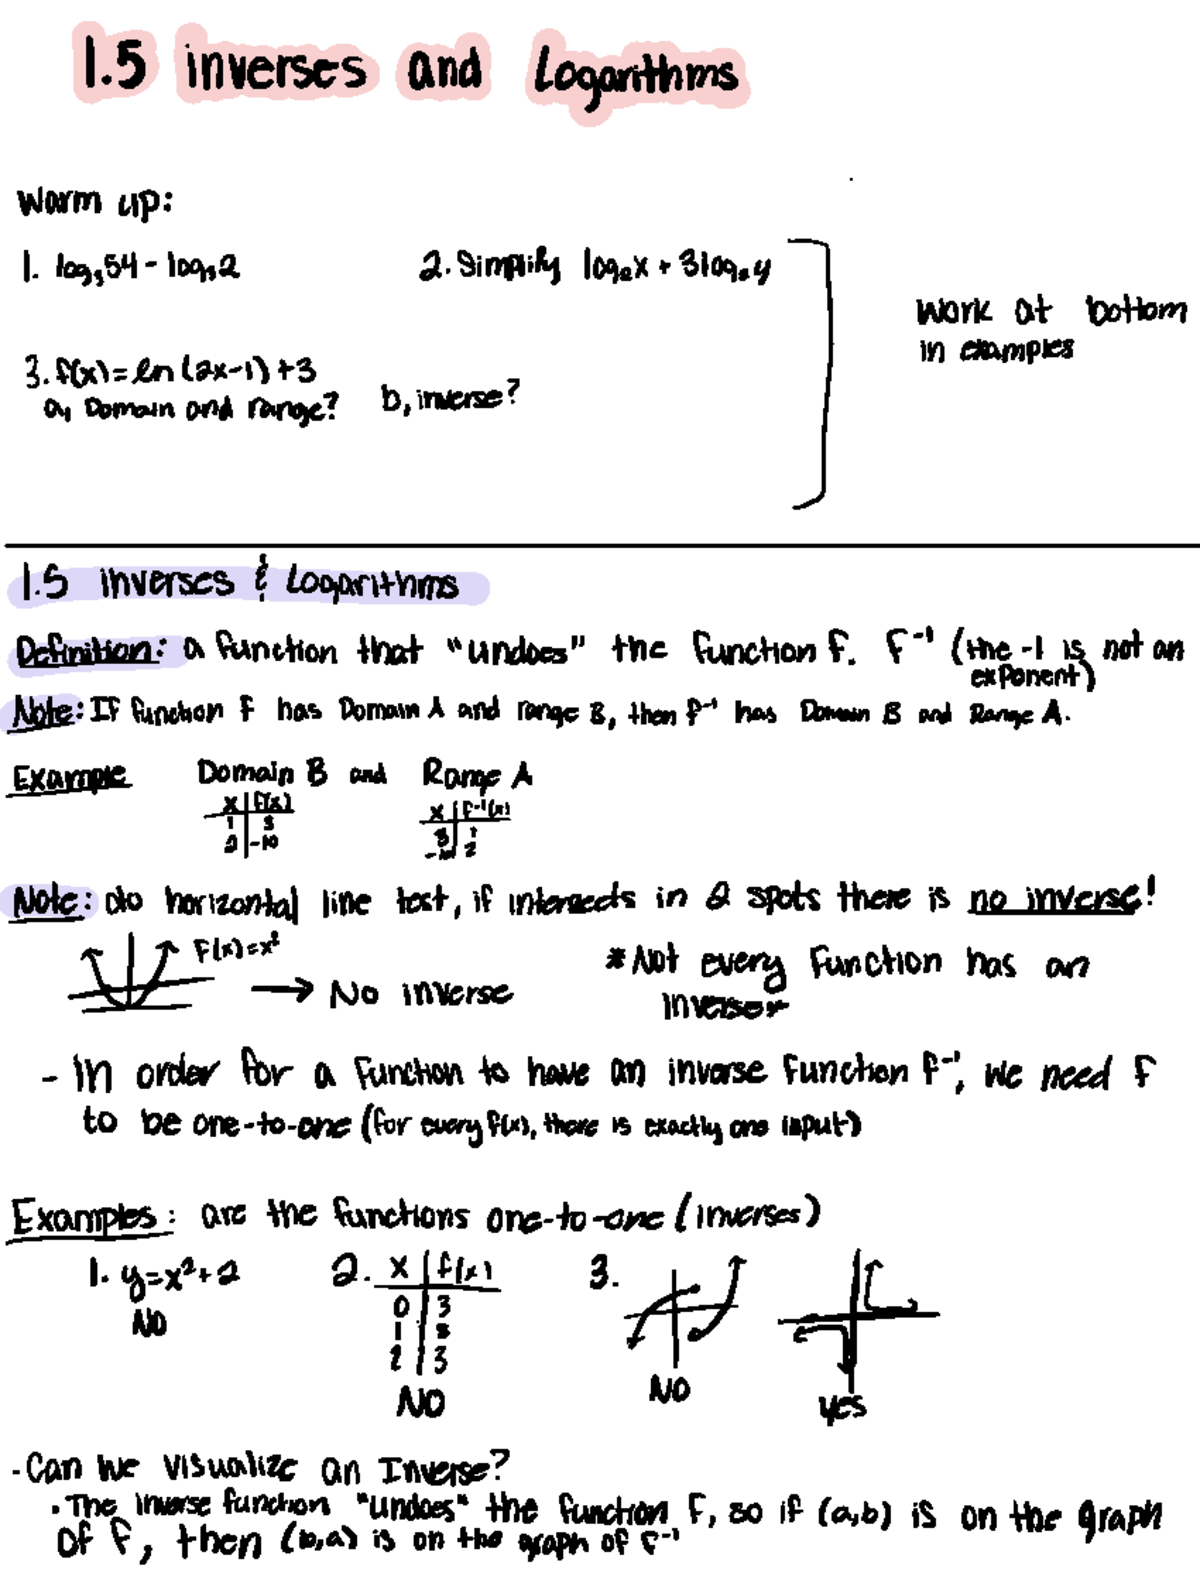 1.5 inverses and Logarithms
Warm up:
1. log₃54 - log₃2
2. Simplify log₂x + 3log₂y
Work at bottom
in examples
3. f(x) = ln(2x-1) +3
a, Domain and range?
b, inverse?
1.5 inverses & Logarithms
Definition: a function that "undoes" the function f. F⁻¹ (the -1 is not an
exponent)
Note: If function f has Domain A and range B, then f⁻¹ has Domain B and Range A.
Example Domain B and Range A
x | f(x)
1 | 3
2 | -10
x | f⁻¹(x)
3 | 1
-10 | 2
Note: do horizontal line test, if intersects in 2 spots there is no inverse!
F(x)=x²
→ No inverse
*Not every function has an
inverse*
- In order for a function to have an inverse function f⁻¹, we need f
to be one-to-one (for every f(x), there is exactly one input)
Examples: are the functions one-to-one (inverses)
1. y=x²+2
NO
2. x | f(x)
0 | 3
1 | 8
2 | 3
NO
3.
NO
yes
- Can we visualize an Inverse?
• The inverse function "undoes" the function f, so if (a,b) is on the graph
of f, then (b,a) is on the graph of f⁻¹